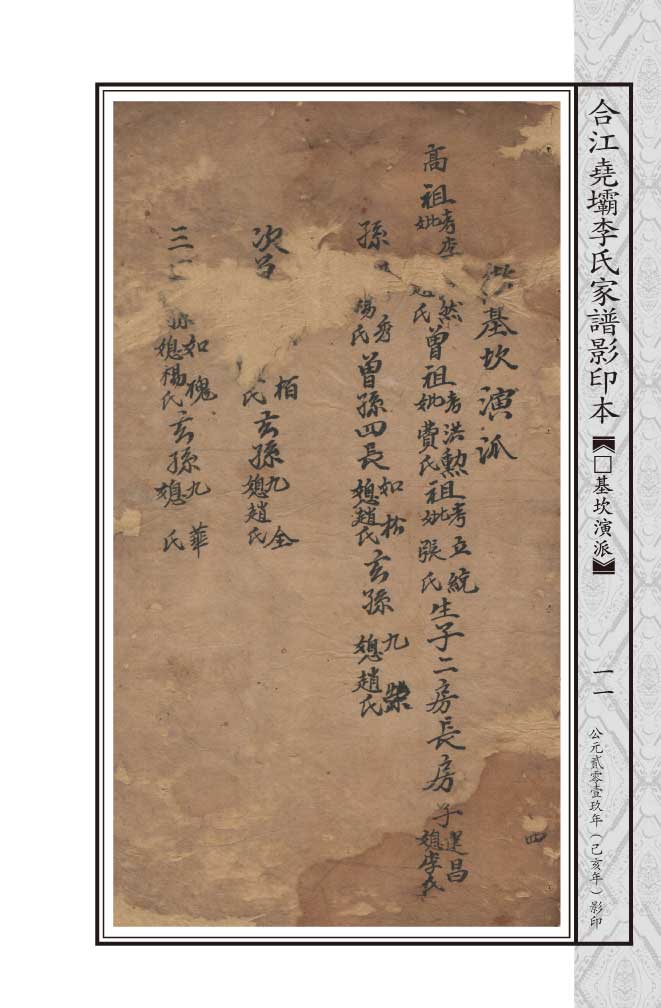 合江堯壩李氏家譜影印本【□基坎演派】 一一 公元貳零壹玖年（己亥年）影印
四
基坎演派
高祖考
妣 氏 然 曾祖考洪勲
妣費氏 祖考五統
妣張氏 生子二房長房子廷昌
媳李氏
孫 秀
楊氏 曾孫四長如松
媳趙氏 玄孫九榮
媳趙氏
次 柏
氏 玄孫九全
媳趙氏
三 如槐
媳楊氏 玄孫九華
媳 氏